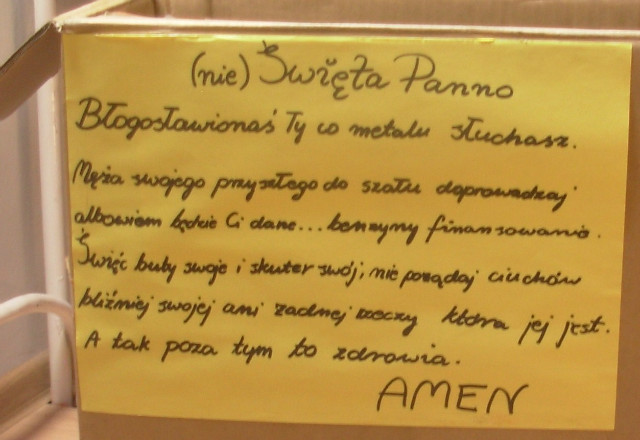 (nie) Święta Panno
Błogosławionaś Ty co metalu słuchasz.
Męża swojego przyszłego do szału doprowadzaj
albowiem będzie Ci dane... benzyny finansowanie.
Święć buty swoje i skuter swój, nie porządaj ciuchów
bliźniej swojej ani żadnej rzeczy która jej jest.
A tak poza tym to zdrowia.
AMEN